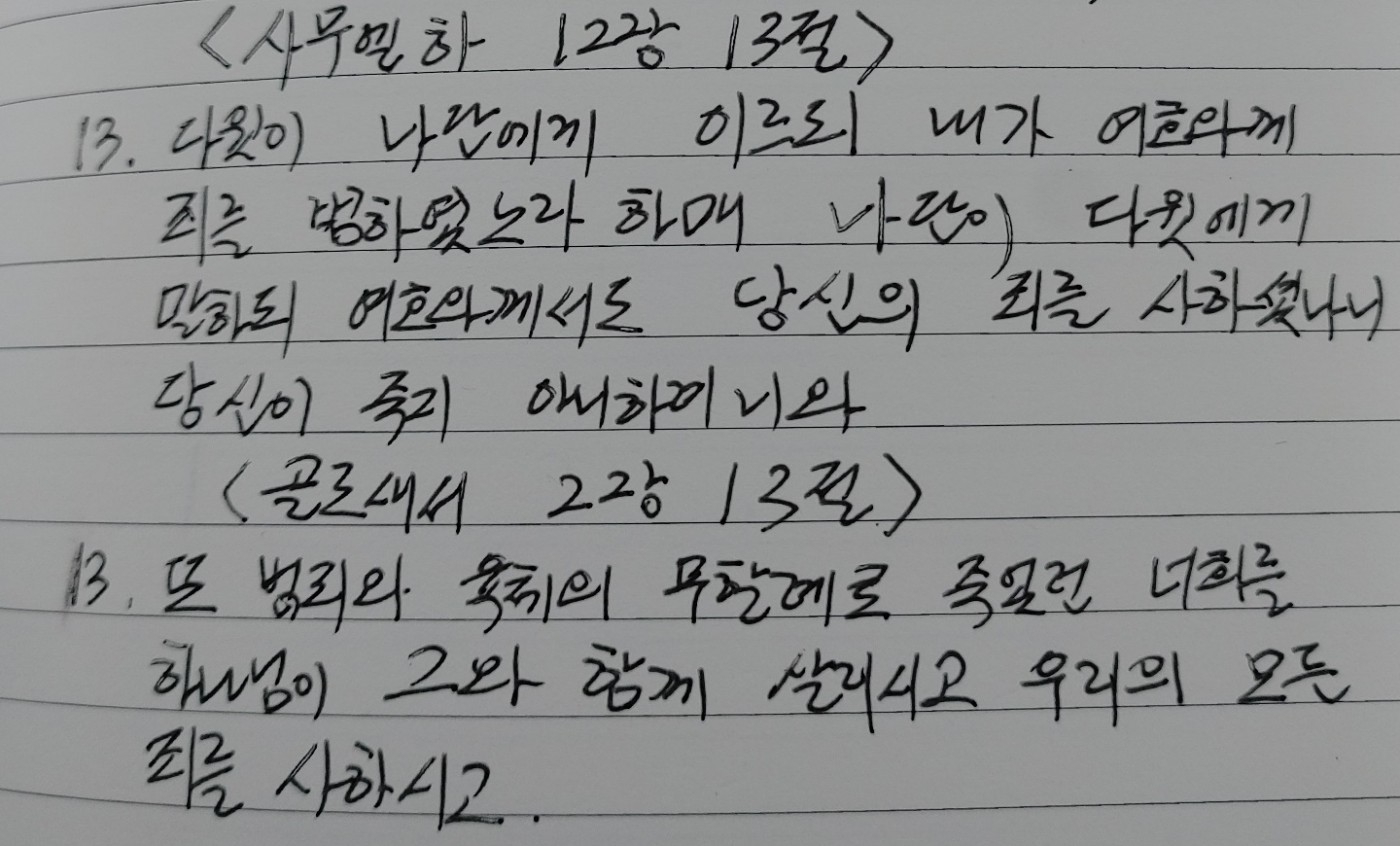 <사무엘하 12장 13절>
13. 다윗이 나단에게 이르되 내가 여호와께
죄를 범하였노라 하매 나단이 다윗에게
말하되 여호와께서도 당신의 죄를 사하셨나니
당신이 죽지 아니하려니와
<골로새서 2장 13절>
13. 또 범죄와 육체의 무할례로 죽었던 너희를
하나님이 그와 함께 살리시고 우리의 모든
죄를 사하시고.